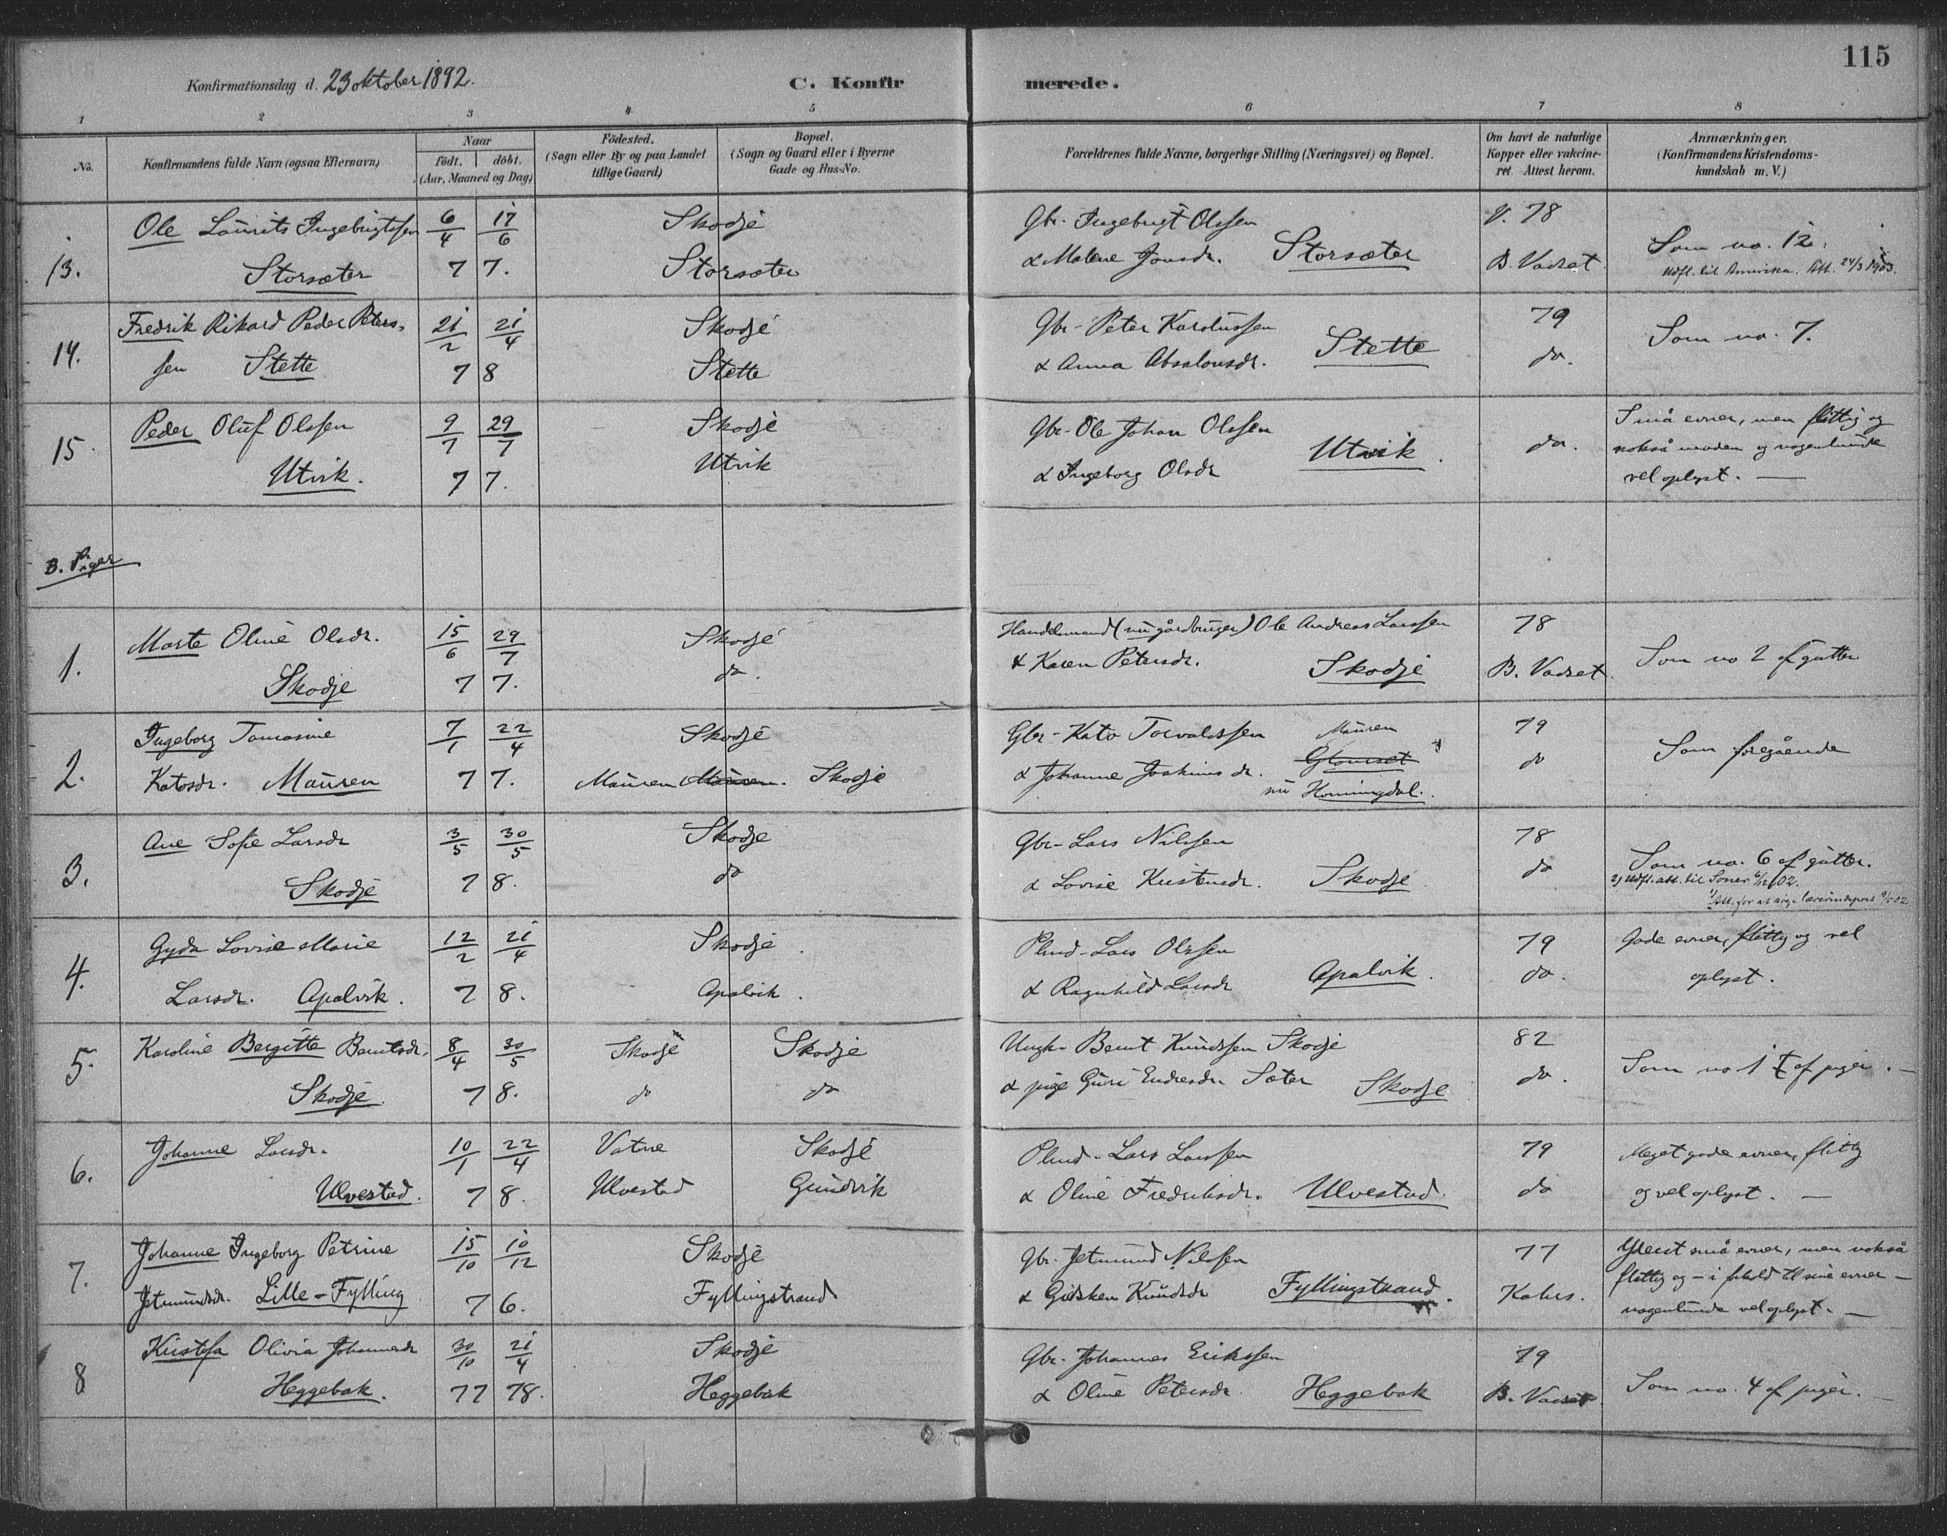 115
Konfirmationsdag d. 23 oktober 1892. C. Konfir merede.
1 2 3 4 5 6 7 8
No. Konfirmandens fulde Navn (ogsaa Efternavn) Naar födt. döbt. (Aar, Maaned og Dag) Födested. (Sogn eller By og paa Landet tillige Gaard) Bopæl. (Sogn og Gaard eller i Byerne Gade og Hus-No. Forældrenes fulde Navne, borgerlige Stilling (Næringsvei) og Bopæl. Om havt de naturlige Kopper eller vakcineret. Attest herom. Anmærkninger. (Konfirmandens Kristendomskundskab m. V.)
13. Ole Laurits Ingebrigtsen 6/4 17/6 Skodje Gbr. Ingebrigt Olssen V. 78 Som no. 12.
Storsæter 7 7. Storsæter & Malene Jonsdr. Storsæter B. Vadset Udfl. til Amerika. Att. 24/3 1903.
14. Fredrik Rikard Peder Peters- 21/2 21/4 Skodje Gbr- Peter Karolussen 79 Som no. 7.
sen Stette 7 8 Stette & Anna Absalonsdr. Stette do.
15. Peder Oluf Olssen 9/7 29/7 Skodje Gbr- Ole Johan Olssen do. Små evner, men flittig og
Utvik. 7 7. Utvik & Ingeborg Olsdr Utvik. nokså moden og nogenlunde
vel oplyst. —
B. Piger
1. Marte Oline Olsdr. 15/6 29/7 Skodje Handelsmand (nu gårdbruger) Ole Andreas Larssen 78 Som no 2 af gutter
Skodje 7 7. do. & Karen Petersdr. Skodje B. Vadset.
2. Ingeborg Tomasine 7/1 22/4 Skodje Gbr- Kato Torvaldssen Mauren 79 Som foregående
Katosdr. Mauren 7 7. Mauren Mauren. Skodje & Johanne Joakimsdr. Glomset do
nu Horningdal.
3. Ane Sofie Larsdr 3/5 30/5 Skodje Gbr- Lars Nilssen 78 Som no. 6 af gutter.
Skodje 7 8. do & Lovise Kristensdr. Skodje do 2) Udfl. att. til
1) Att. for at søge
4. Gyda Lovise Marie 12/2 21/4 Skodje. Plmd- Lars Olssen 79 Gode evner, flittig og vel
Larsdr. Apalvik. 7 8. Apalvik. & Ragnhild Larsdr Apalvik. do. oplyst.
5. Karoline Bergitte Berntsdr. 8/4 30/5 Skodje Skodje Ungk- Bernt Knudssen Skodje 82 Som no 1 af piger. —
Skodje. 7 8. do do & pige Guri Endresdr. Sæter Skodje do.
6. Johanne Larsdr. 10/1 22/4 Vatne Skodje Plmd- Lars Larssen 79 Meget gode evner, flittig
Ulvestad. 7 8. Ulvestad Grindvik & Oline Fredriksdr. Ulvestad. do og vel oplyst. —
7. Johanne Ingeborg Petrine 15/10 10/12 Skodje Gbr. Jetmund Nilssen 77 Ydest små evner, men nokså
Jetmundsdr. Lille-Fylling 7 6. Fyllingstrand & Gidsken Knudsdr Fyllingstrand. Kahrs. flittig og — i forhold til sine evner —
nogenlunde vel oplyst. —
8 Olivia Johannesdr 30/10 21/4 Skodje Gbr. Johannes Erikssen 79 Som no. 4 af piger. —
Heggebak. 77 78. Heggebak & Oline Petersdr. Heggebak B. Vadset